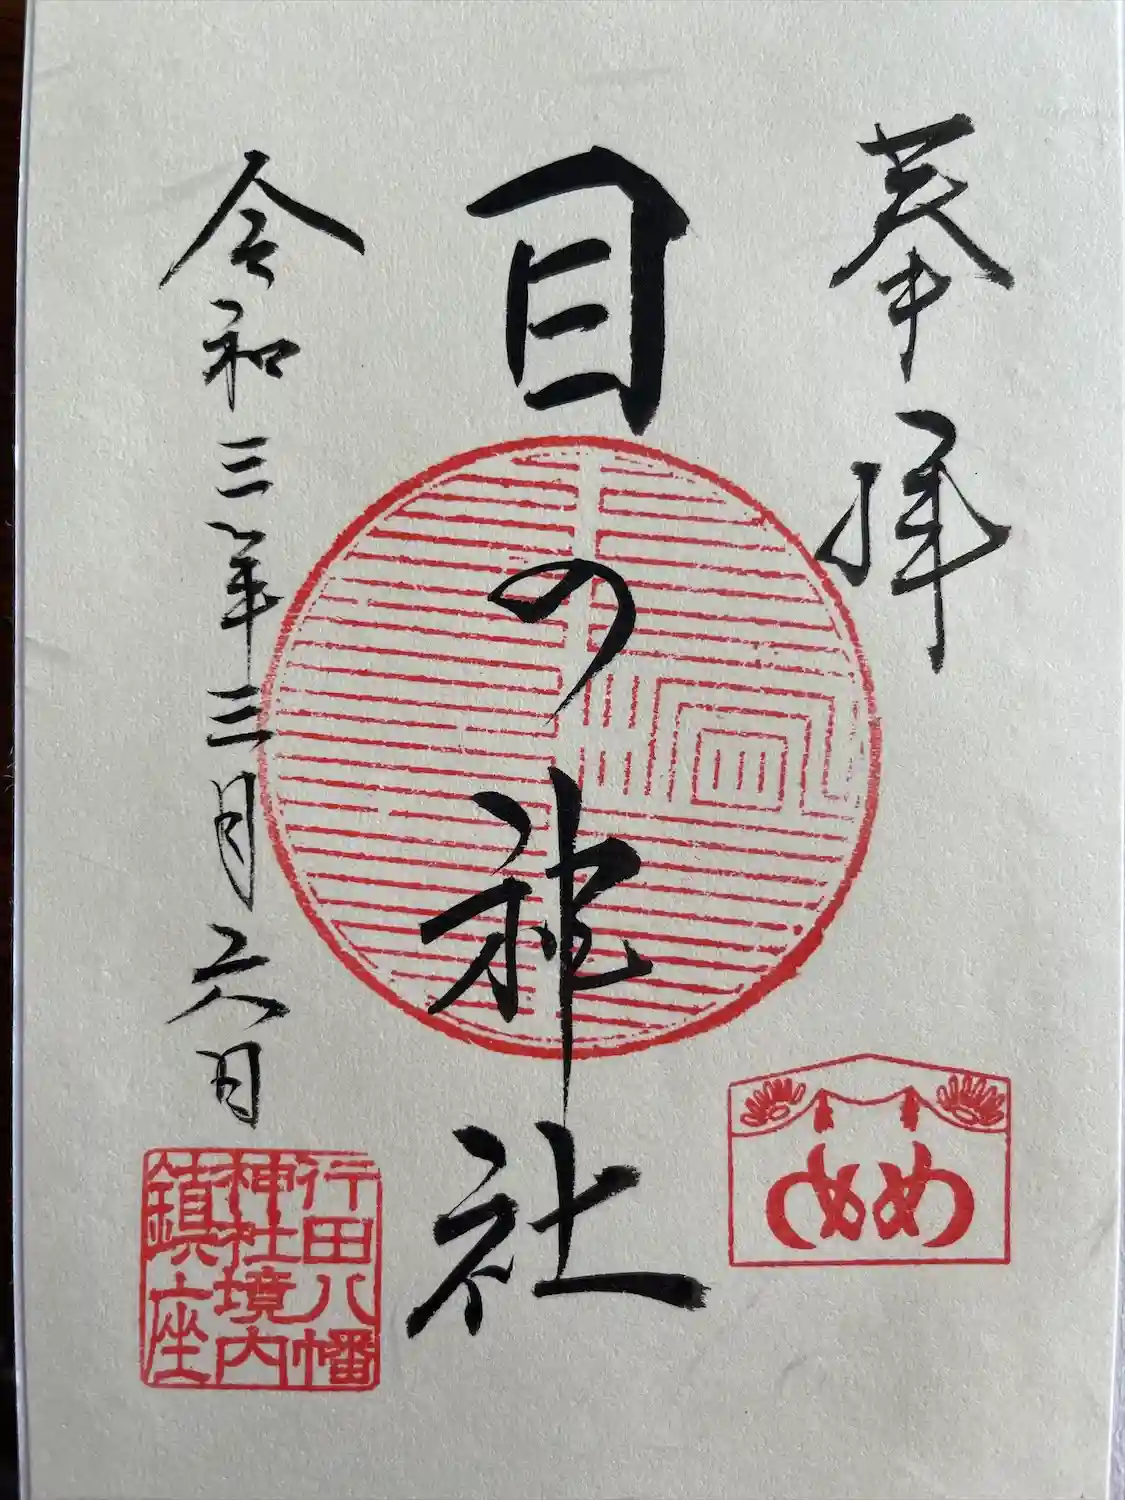 奉拝
目の神社
令和三年三月六日
めめ
行田八幡
神社境内
鎮座